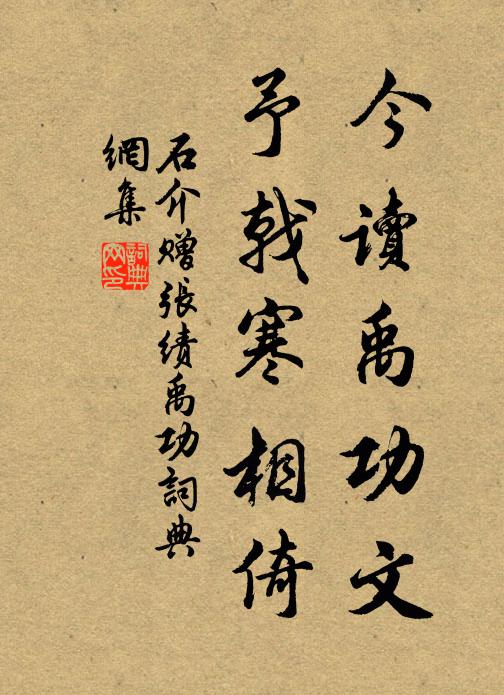 今讀禹功文
予戟寒相倚
石介贈張績禹功詞典
網集
詞典網印